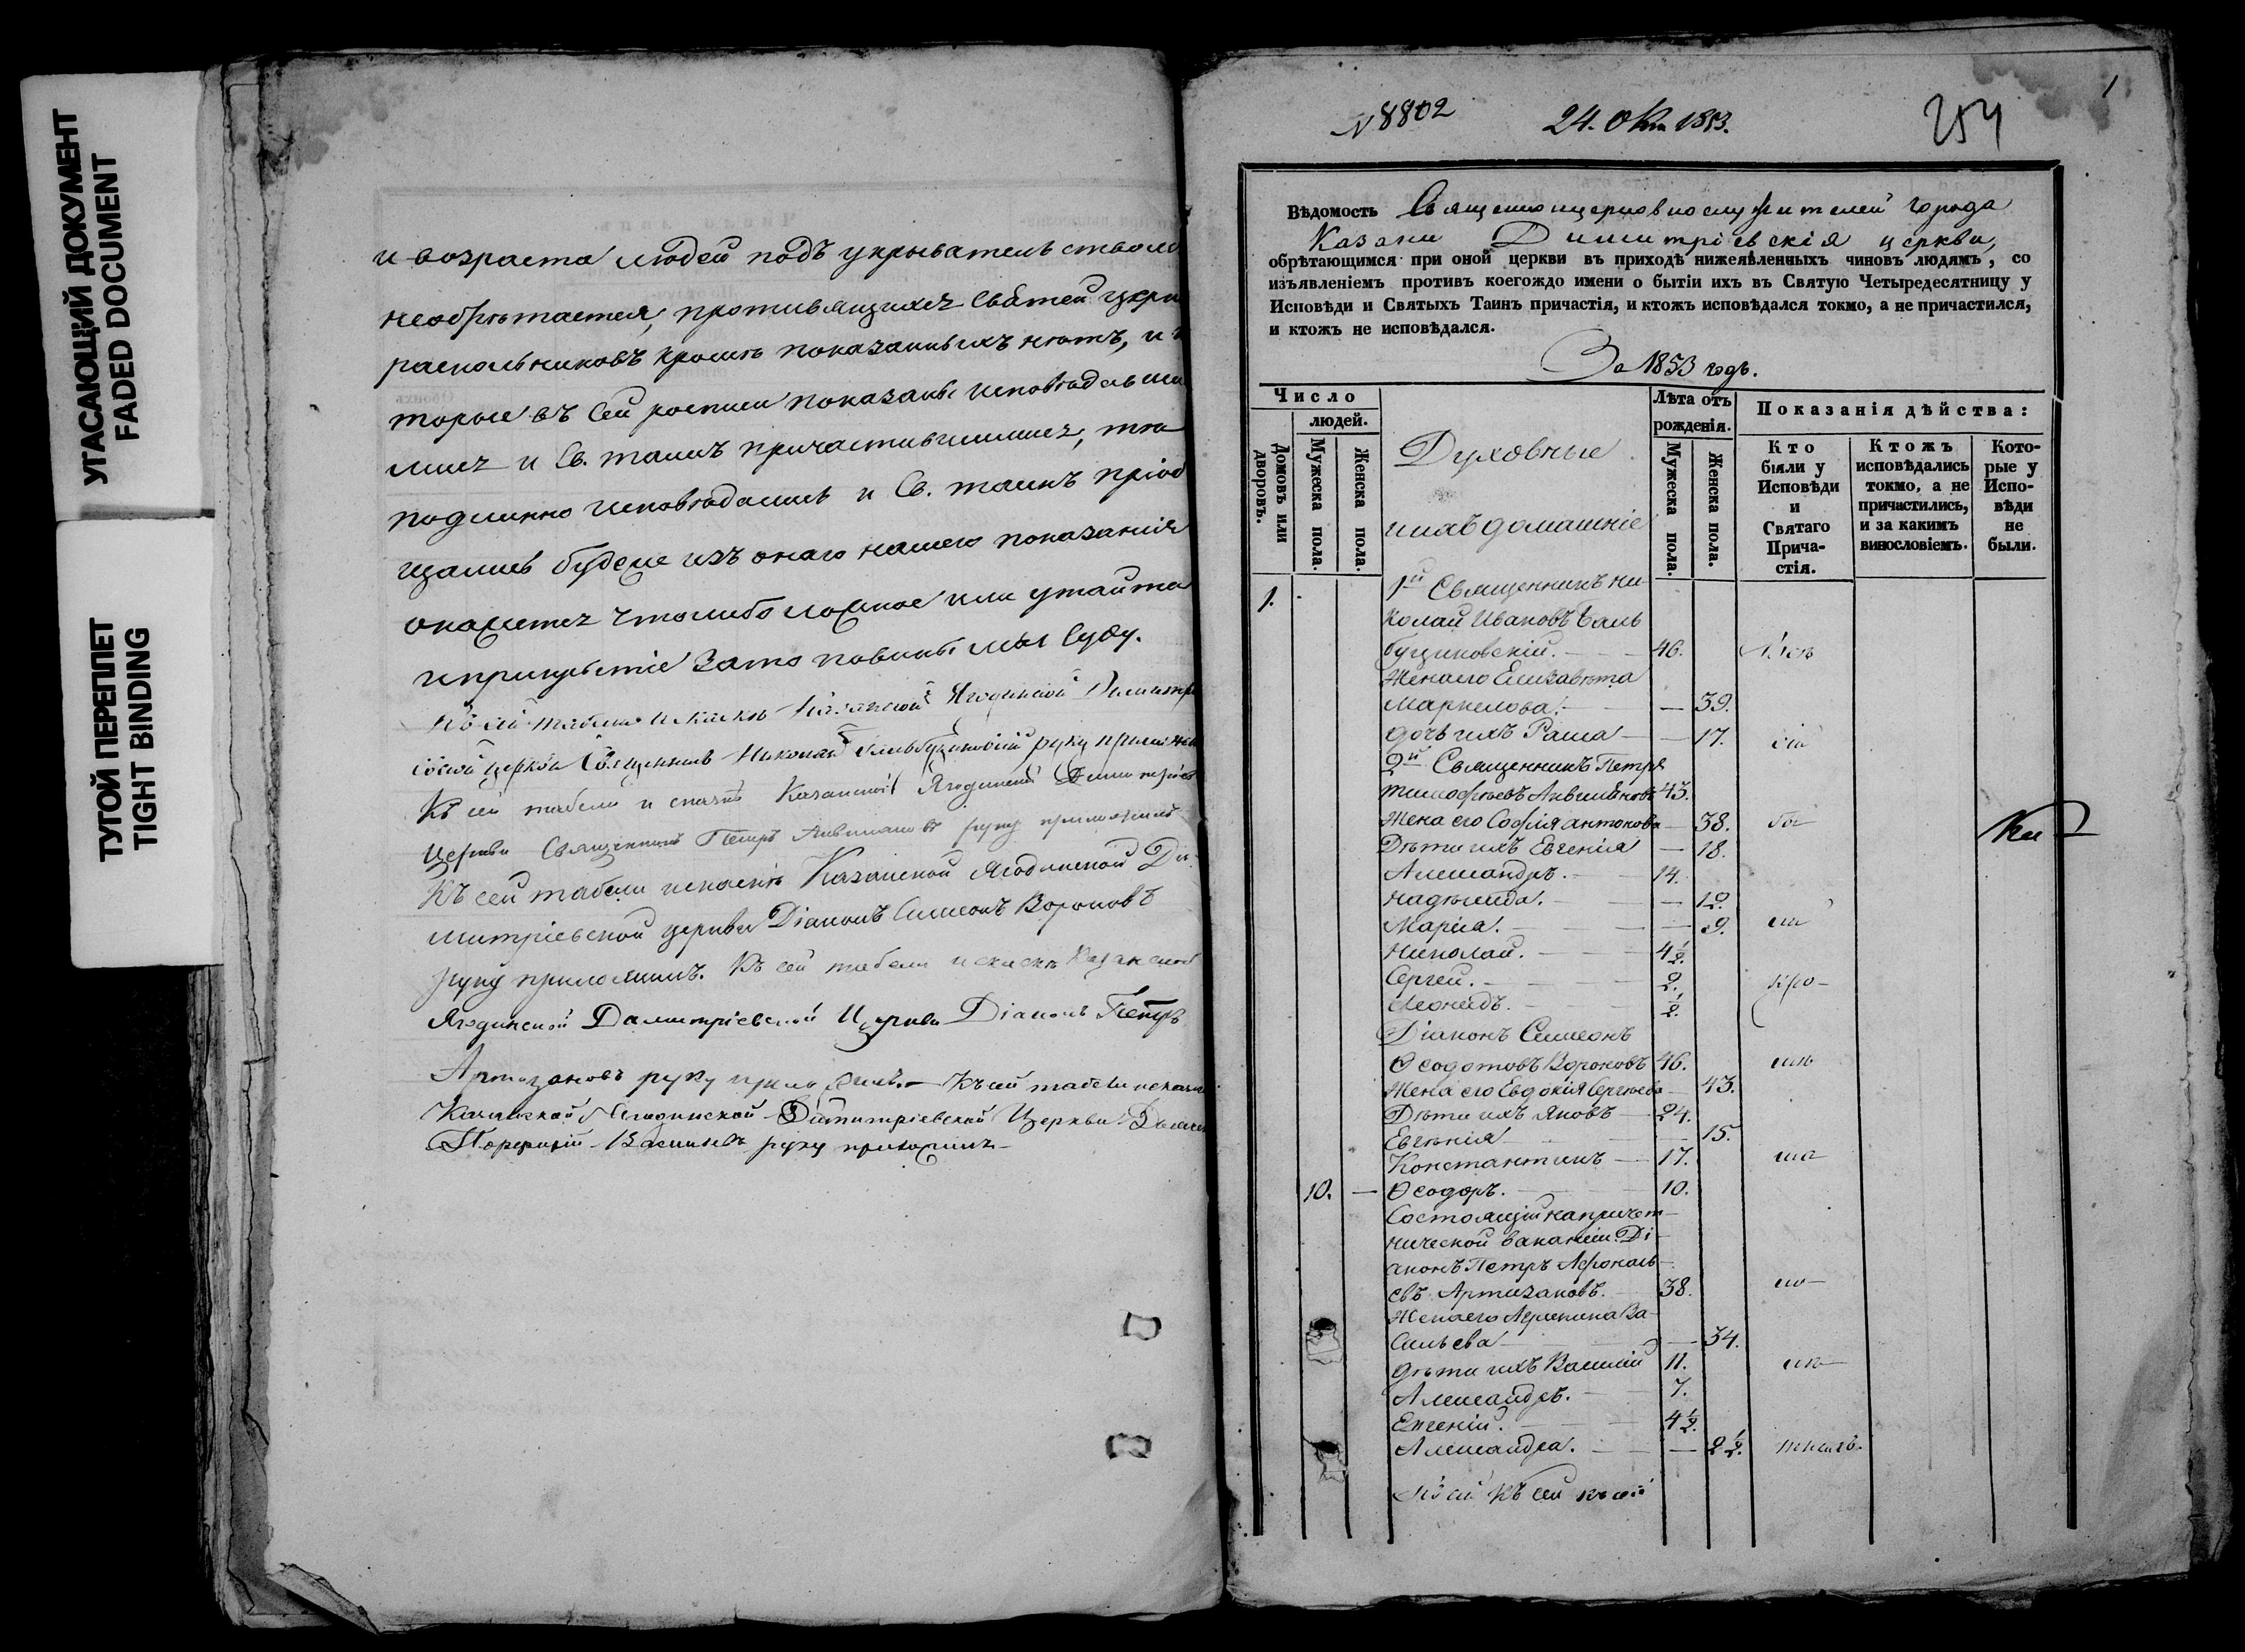 УГАСАЮЩИЙ ДОКУМЕНТ
FADED DOCUMENT
ТУГОЙ ПЕРЕПЛЕТ
TIGHT BINDING
и возраста людей подъ укрывательствомъ
необрѣтается, противящихся Святей церкви
раскольниковъ кромѣ показанныхъ нѣтъ, и
торые въ сей росписи показаны исповѣдавши
мися и Св. таинъ причастившимися, тѣ
подлинно исповѣдались и Св. таинъ пріоб
щались будеже изъ онаго нашего показанія
окажется что либо ложное или утайта
и прикрытіе зато повинны мы суду.
Къ сей табели и скаскѣ Казанской Ягодинской Димитрі
евской церкви Священникъ Николай Бальбуциновскій руку приложилъ
Къ сей табели и скаскѣ Казанской Ягодинской Димитріев
Церкви Священникъ Петръ Аквиляновъ руку приложилъ
Къ сей табели искаскѣ Казанской Ягодинской Ди
митріевской церкви Діаконъ Симеонъ Вороновъ
руку приложилъ. Къ сей табели и скаскѣ Казанской
Ягодинской Димитріевской Церкви Діаконъ Петръ
Артизановъ руку приложилъ. — Къ сей табели искаскѣ
Казанской Ягодинской Димитріевской Церкви Дьячекъ
Порфирій Васильевъ руку приложилъ —
N 8802 24. Окт 1853. 254 1
Вѣдомость Священноцерковнослужителей города
Казани Димитріевскія церкви,
обрѣтающимся при оной церкви въ приходѣ нижеявленныхъ чиновъ людямъ, со
изъявленіемъ противъ коегождо имени о бытіи ихъ въ Святую Четыредесятницу у
Исповѣди и Святыхъ Таинъ причастія, и ктожъ исповѣдался токмо, а не причастился,
и ктожъ не исповѣдался.
За 1853 годъ.
Число
людей.
Домовъ или дворовъ.
Мужеска пола.
Женска пола.
Духовные
и ихъ домашніе
Лѣта отъ рожденія.
Мужеска пола.
Женска пола.
Показанія дѣйства:
Кто были у Исповѣди и Святаго Причастія.
Ктожъ исповѣдались токмо, а не причастились, и за какимъ винословіемъ.
Которые у Исповѣди не были.
1. 1й Священникъ Ни
колай Ивановъ Баль
буциновскій. 46.
Жена его Елизавета
Маркелова. — 39.
дочь ихъ Раиса — 17.
2й Священникъ Петръ
Тимофеевъ Аквиляновъ 43.
Жена его Софія Антонова — 38.
Дѣти ихъ Евгенія — 18.
Александръ. 14.
Надежда. — 12.
Марія. — 9.
Николай. 4 1/2.
Сергей. 2.
Леонидъ. 1/2.
Діаконъ Симеонъ
Ѳеодотовъ Вороновъ 46.
Жена его Евдокія Сергѣева — 43.
Дѣти ихъ Яковъ — 24.
Евгенія — 15.
Константинъ — 17.
10. — Ѳеодоръ. 10.
Состоящій на причет
нической ваканціи Ді
аконъ Петръ Афонась
евъ Артизановъ. 38.
Жена его Агрипина Ва
сильева — 34.
дѣти ихъ Василій 11.
Александръ. 7.
Евгеній. 4 1/2.
Александра. — 2 1/2.
Къ сей